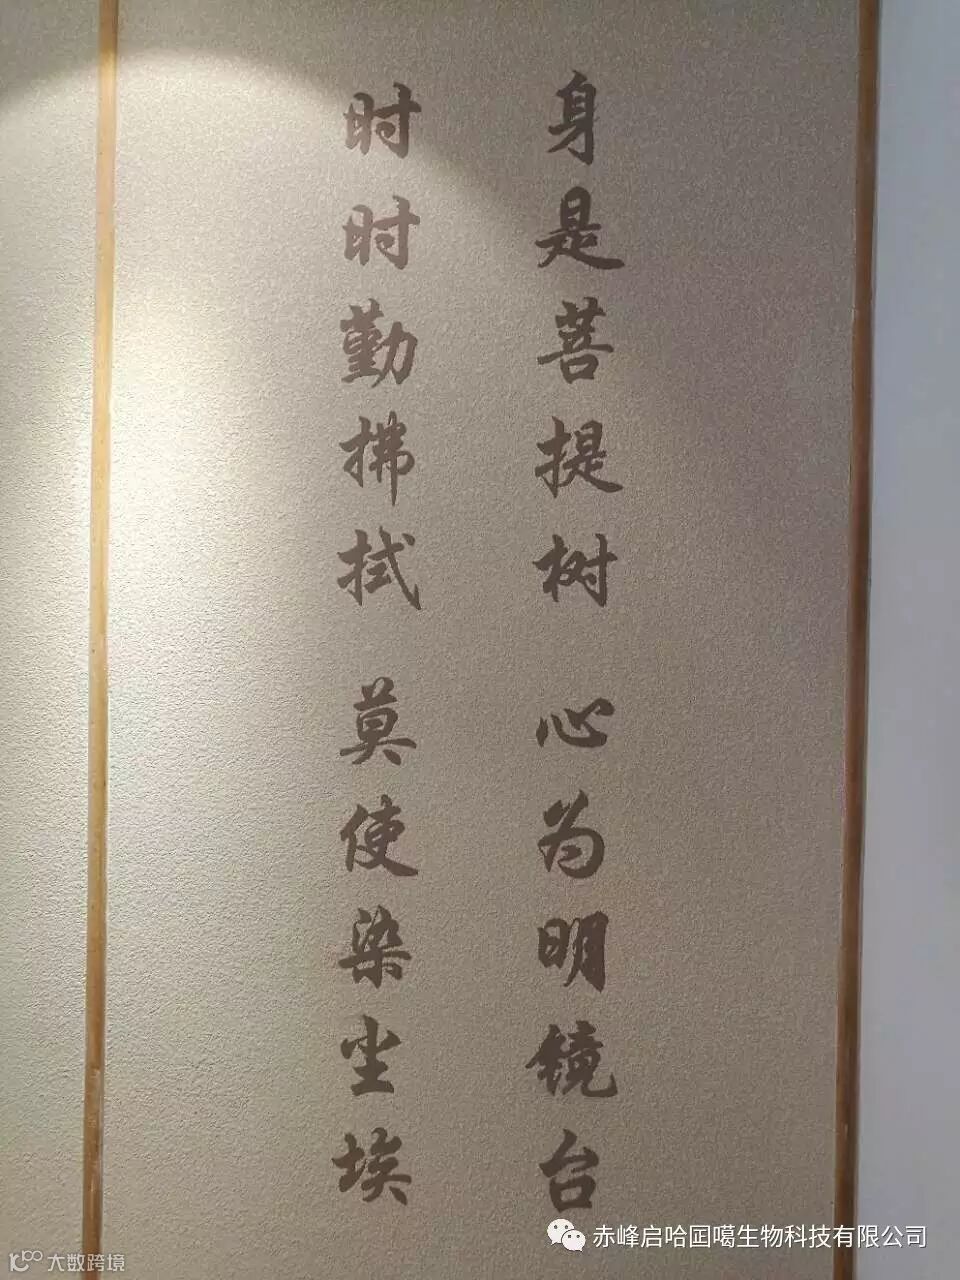 身是菩提树 心为明镜台
时时勤拂拭 莫使染尘埃
赤峰启哈囯噶生物科技有限公司
大数跨境